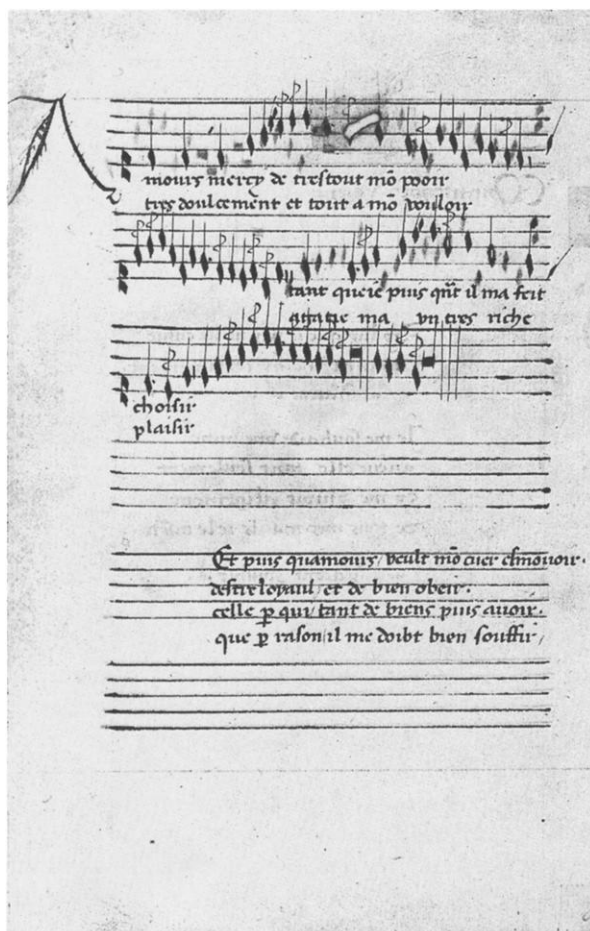 Amours mercy de trestout mõ pooir
tres doulcement et tout a mõ vouloir
tant que ie puis qñt il ma feit
grace ma vn tres riche
choisir
plaisir
Et puis quamours / veult mõ cuer esmouoir ·
destre loyaul et de bien obeir ·
celle p̲ qui / tant de biens puis auoir ·
que p̲ rason / il me doibt bien souffir /